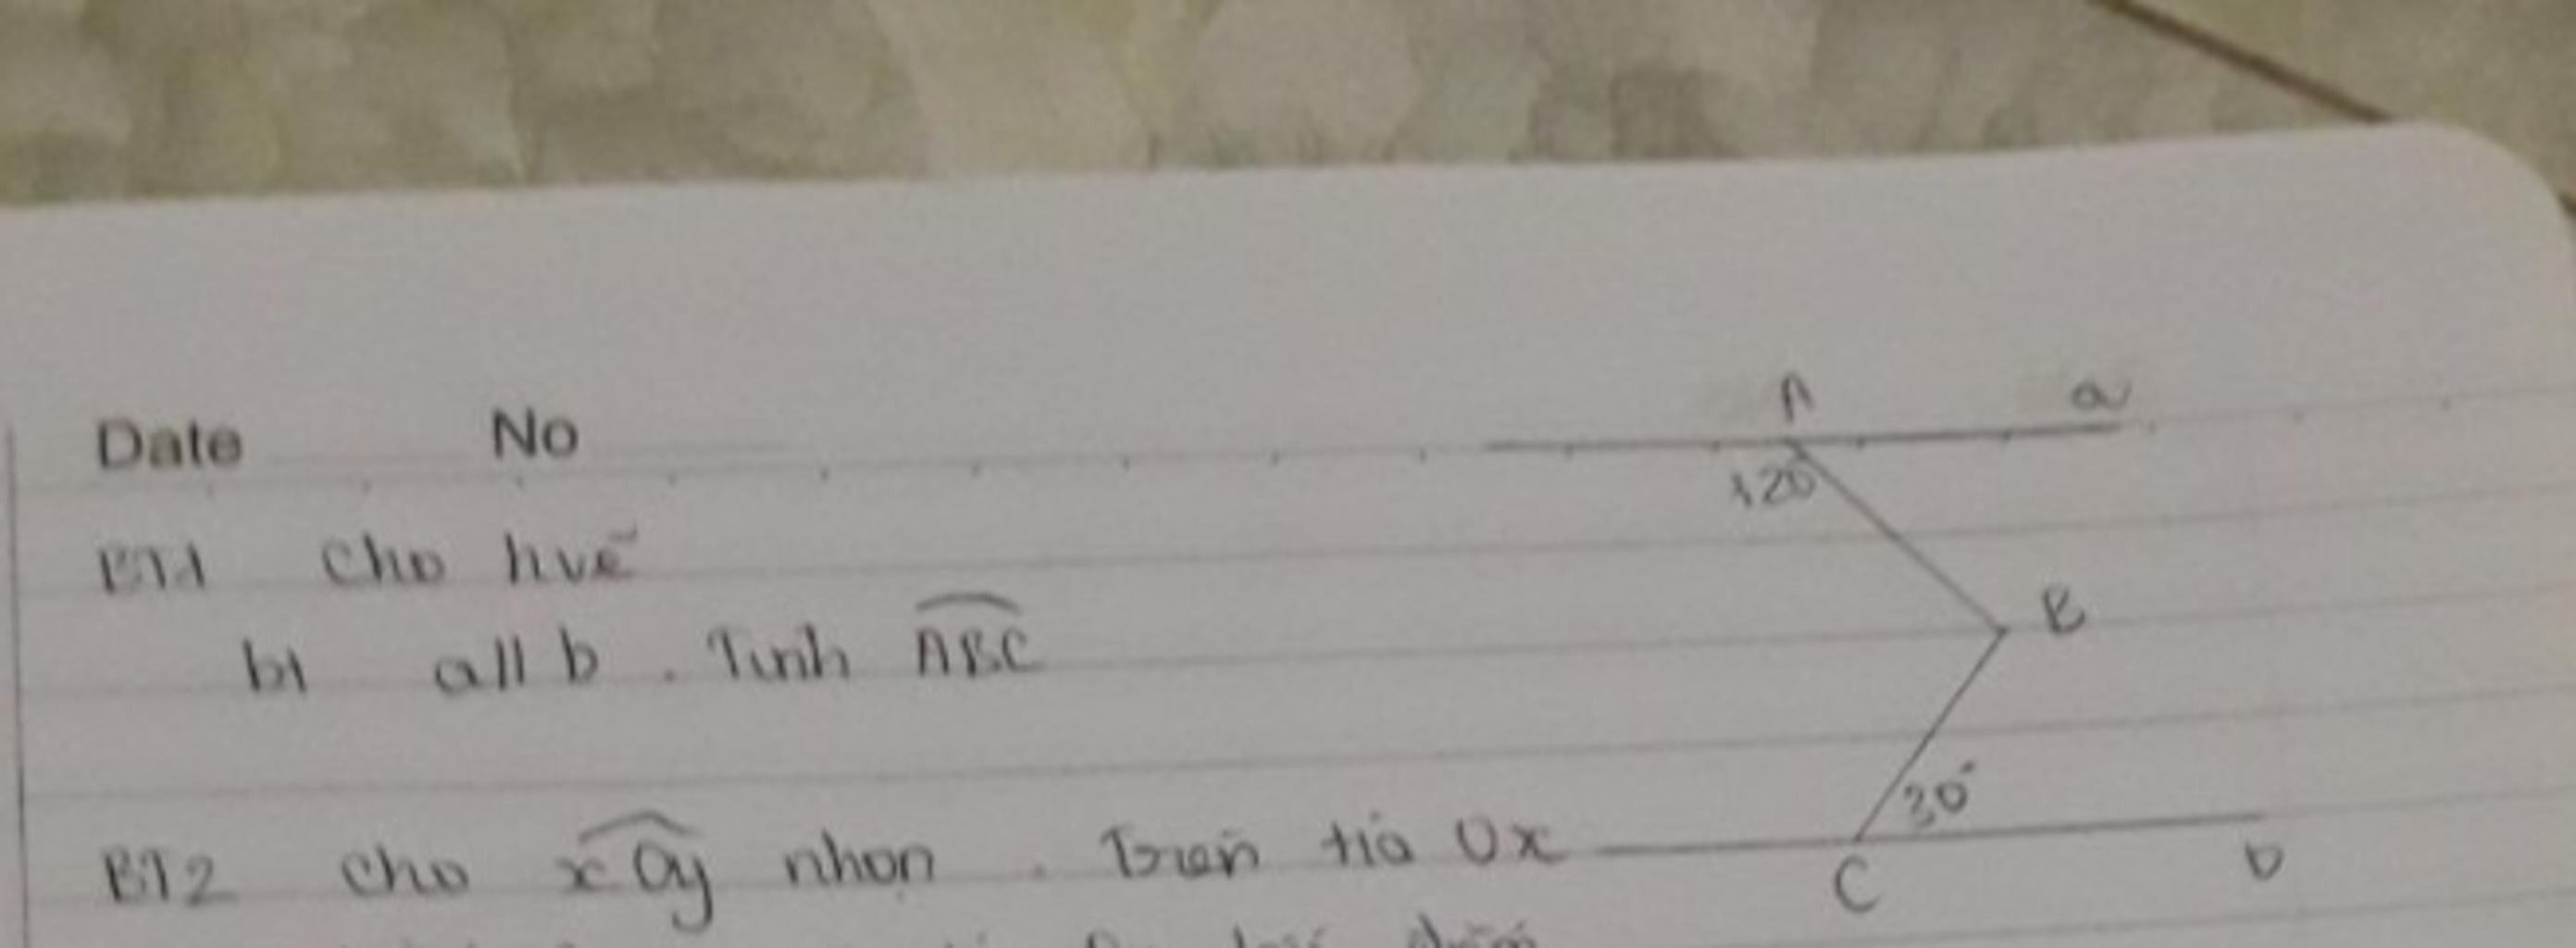 A a
Date No
120
BT1 Cho hvẽ
B
b1 a//b. Tính ABC
30°
BT2 Cho xOy nhọn. Trên tia Ox
C b